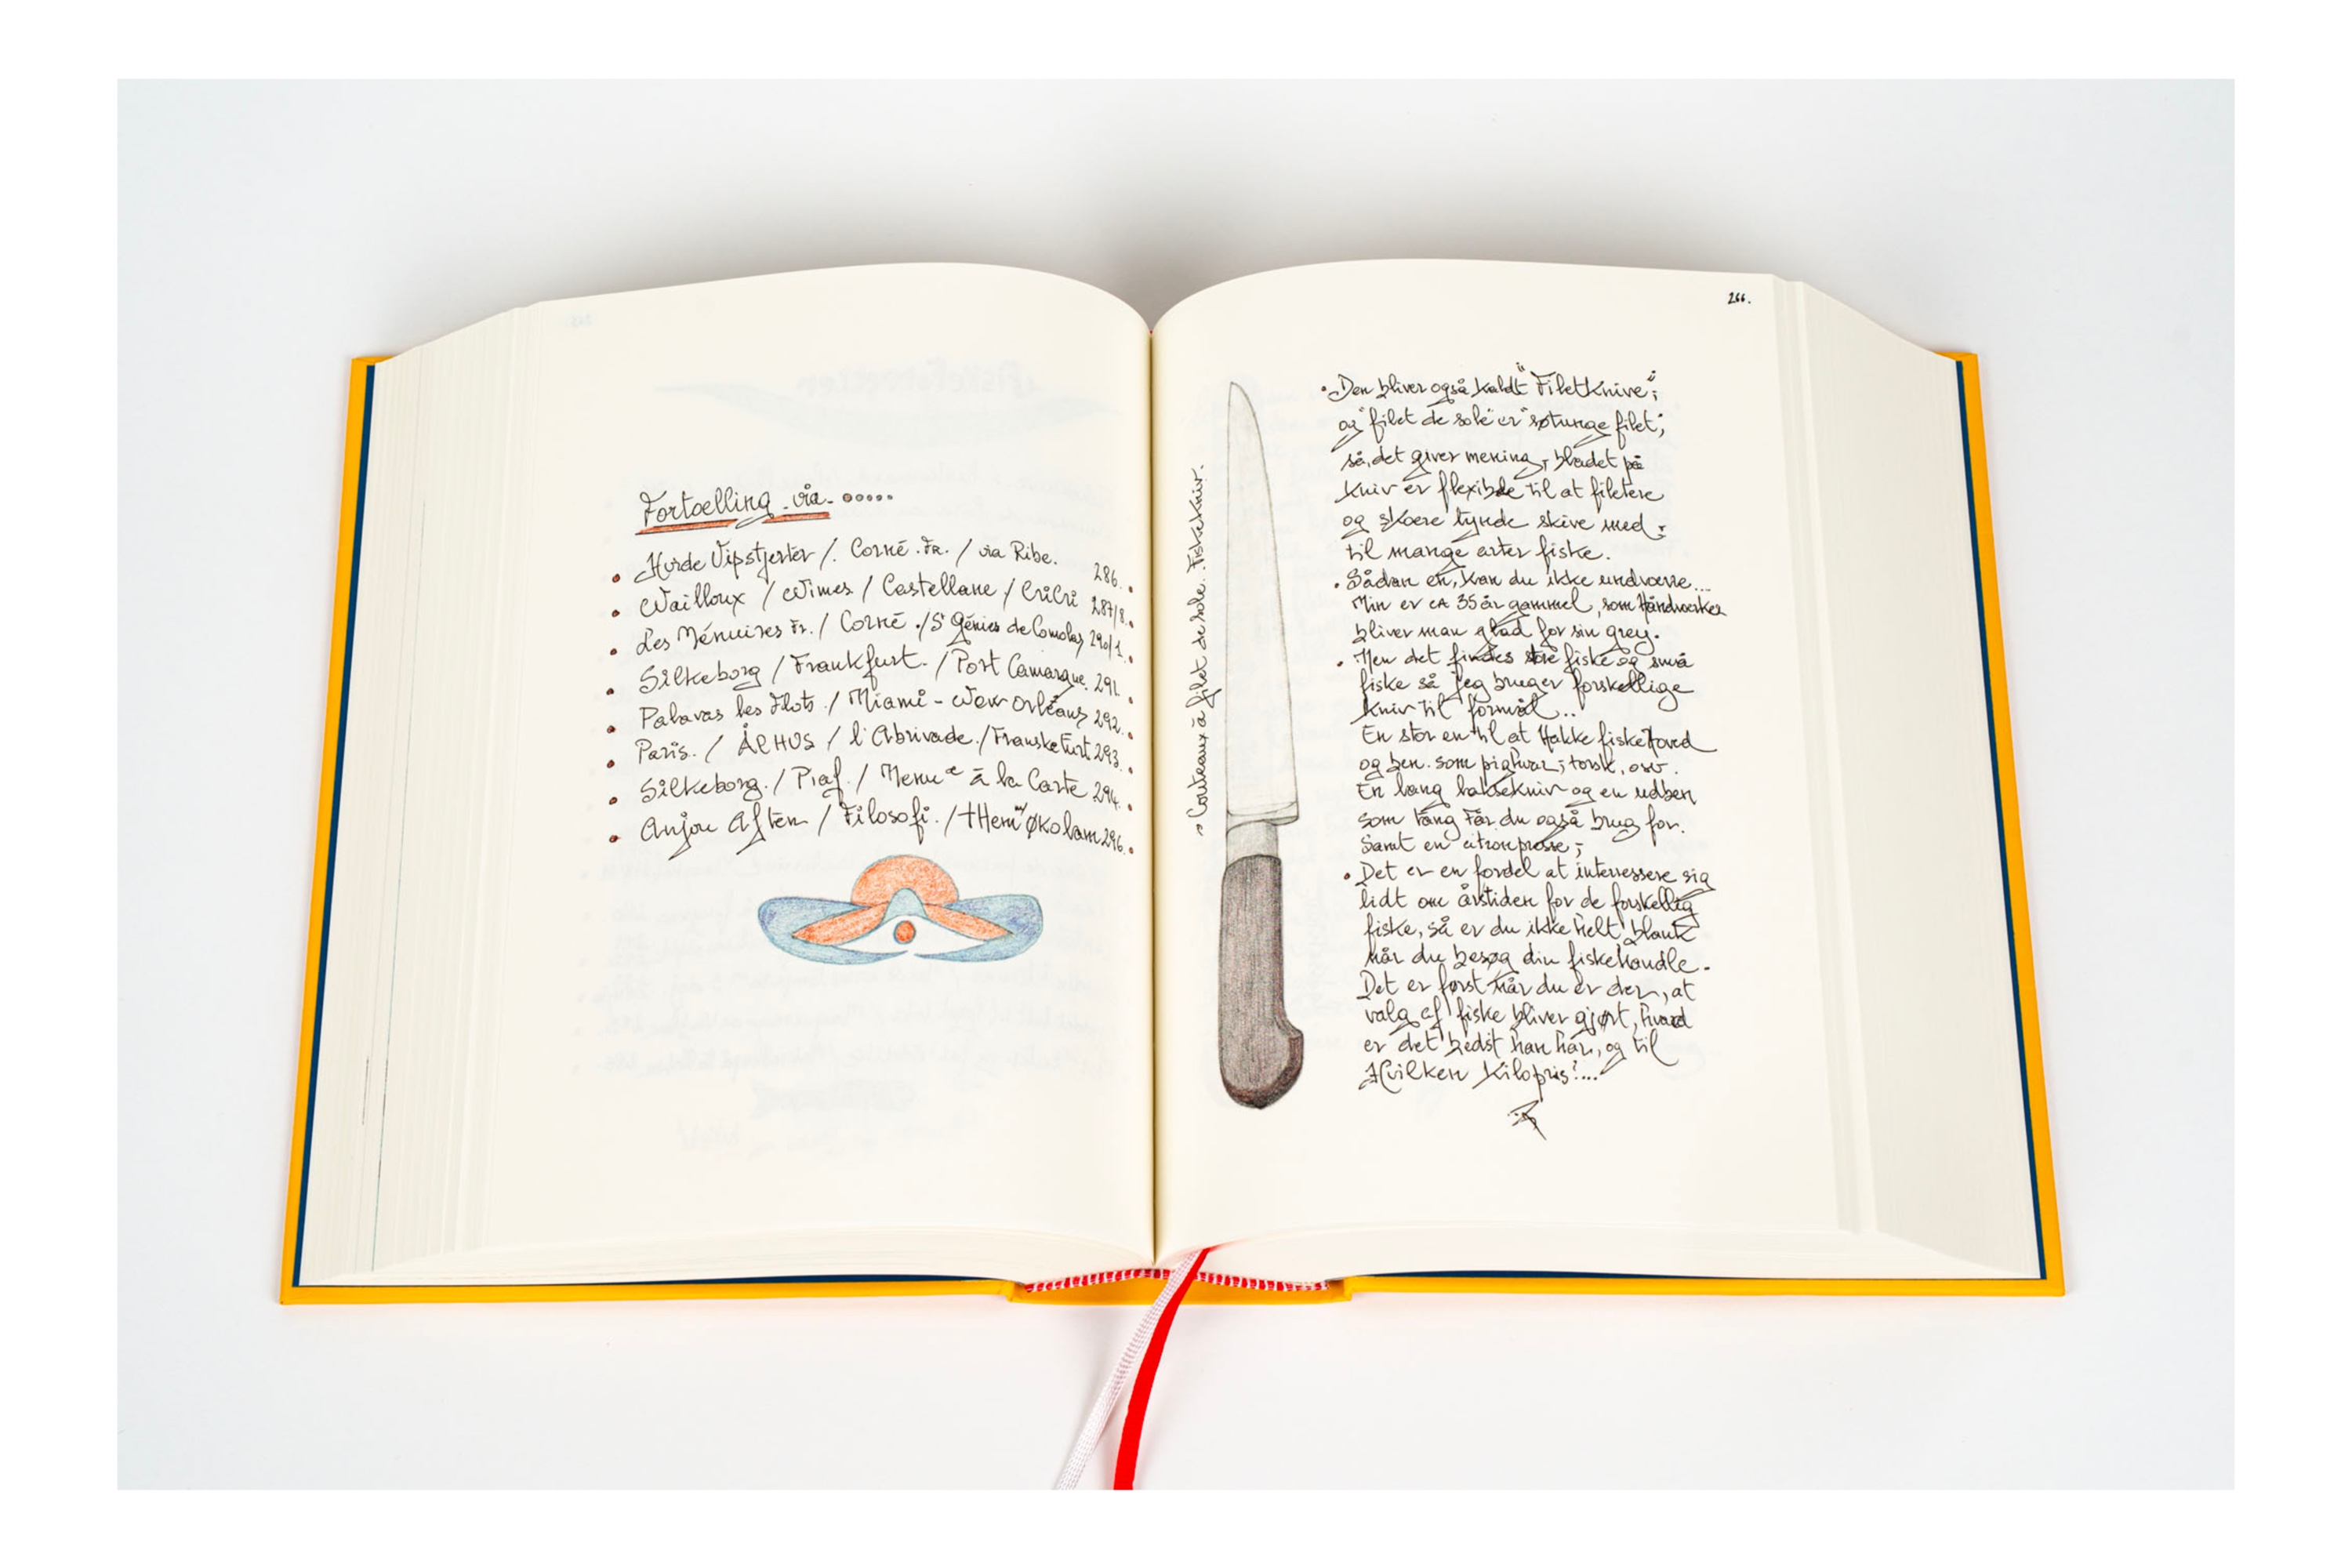 Fortoelling via.
Hvide Vipstjerter /. Corné. Fr. / via Ribe. 286.
Wailloux / Wimes / Castellane / CriCri 287/8.
Les Ménuires Fr. / Corné ./ St Génies de Comolas 290/1.
Silkeborg / Frankfurt. / Port Camargue. 291.
Palavas les Flots / Miami - New Orléans 292.
Paris. / ÅRHUS / l'Abrivade. / Franskefurt 293.
Silkeborg. / Piaf. / Menu à la Carte 294.
Anjou Aften / Filosofi. / Økolam 296.
266.
Couteaux à filet de sole. Fiskekniv.
Den bliver også kaldt "Filetknive";
og "filet de sole" er "søtunge filet";
så, det giver mening, bladet på
kniv er flexible til at filetere
og skoere tynde skive med;
til mange arter fiske.
Sådan en, kan du ikke undvoere...
Min er CA 35 år gammel, som Håndvoerker
bliver man glad for sin grej.
Men det findes store fiske og små
fiske så jeg bruger forskellige
kniv til formål..
En stor en til at Hakke fiskehoved
og ben. som pighvar; torsk, osv.
En lang laksekniv og en udben
som tang Får du også brug for.
Samt en citronpresse;
Det er en fordel at interressere sig
lidt om årstiden for de forskellig
fiske, så er du ikke helt blank
når du besøg din fiskehandle.
Det er først når du er der, at
valg af fiske bliver gjort, hvad
er det bedst han har, og til
Hvilken Kilopris!...